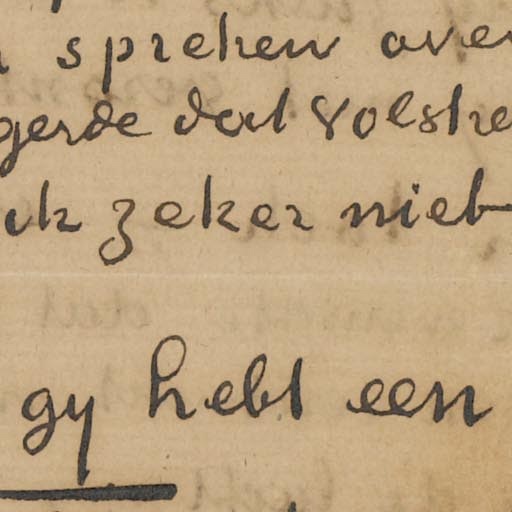 spreken over
gerde dat volske
ik zeker niet
gy hebt een